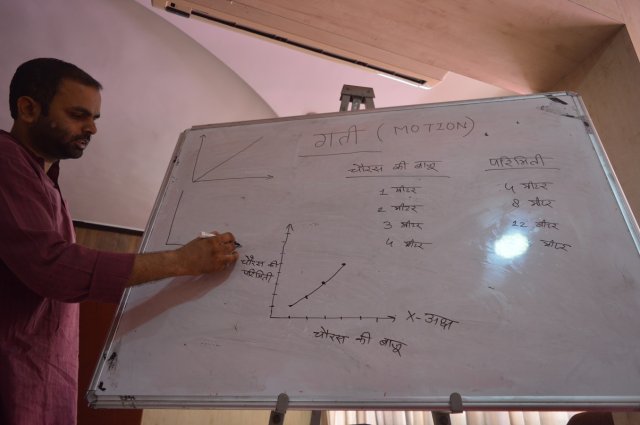 गती (MOTION)
चौरस की बाजू परिमिती
1 मीटर 4 मीटर
2 मीटर 8 मीटर
3 मीटर 12 मीटर
4 मीटर मीटर
चौरस की
परिमिती
X-अक्ष
चौरस की बाजू